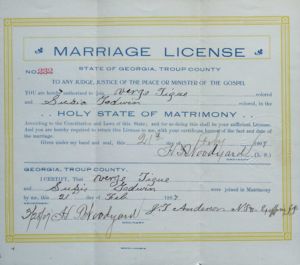 MARRIAGE LICENSE
STATE OF GEORGIA, TROUP COUNTY
NO. 232
TO ANY JUDGE, JUSTICE OF THE PEACE OR MINISTER OF THE GOSPEL
YOU are hereby authorized to join Verge Tigue colored
and Susie Godwin colored, in the
HOLY STATE OF MATRIMONY
According to the Constitution and Laws of this State; and for so doing this shall be your sufficient License. And
you are hereby required to return this License to me, with your certificate hereon of the fact and date of
the marriage.
Given under my hand and seal, this 21st day of
Woodyard (L. S.)
GEORGIA, TROUP COUNTY.
I CERTIFY, That Verge Tigue
and Susie Godwin were joined in Matrimony
by me, this 21 day of Feb
Woodyard J. T. Anderson